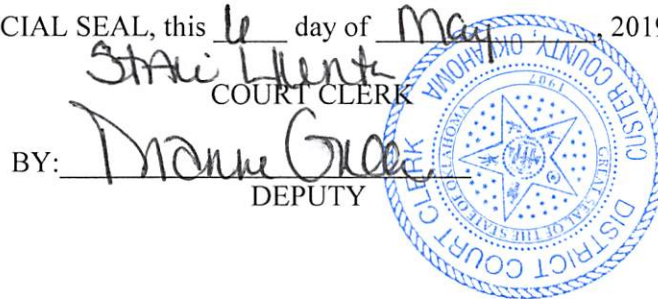 CIAL SEAL, this 6 day of May, 2019
COURT CLERK
BY: Dianne
DEPUTY
DISTRICT COURT CLERK
CUSTER COUNTY, OKLAHOMA
GREAT SEAL OF THE STATE OF OKLAHOMA
1907